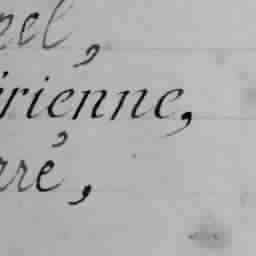 nel,
irienne,
rré,